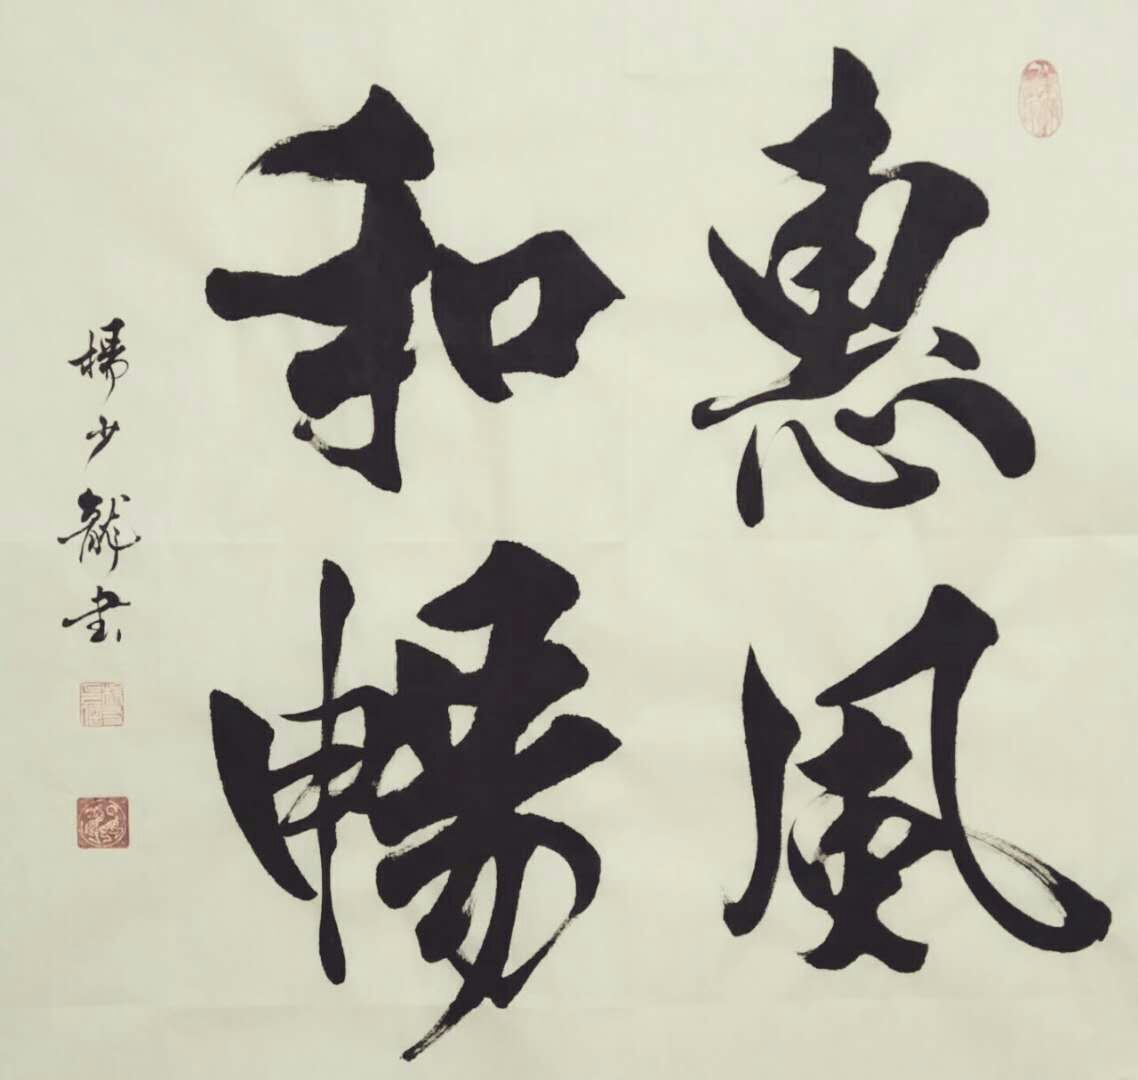 惠風
和暢
楊少龍書